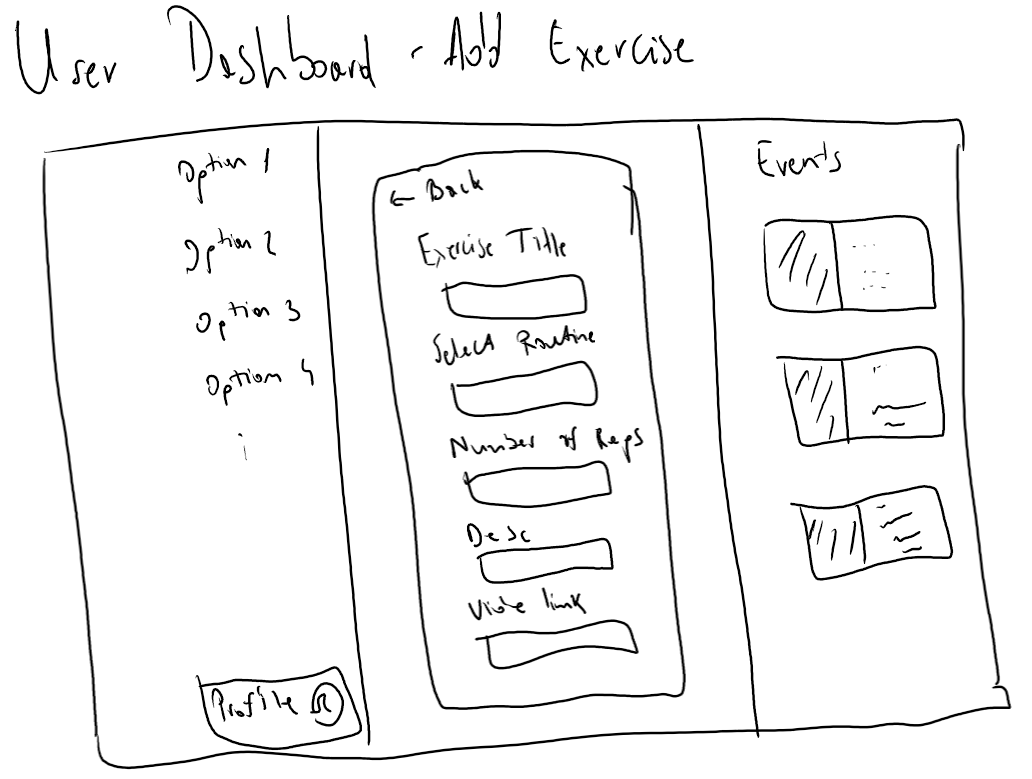 User Dashboard - Add Exercise
Option 1
Option 2
Option 3
Option 4
Profile
← Back
Exercise Title
Select Routine
Number of Reps
Desc
Vide link
Events